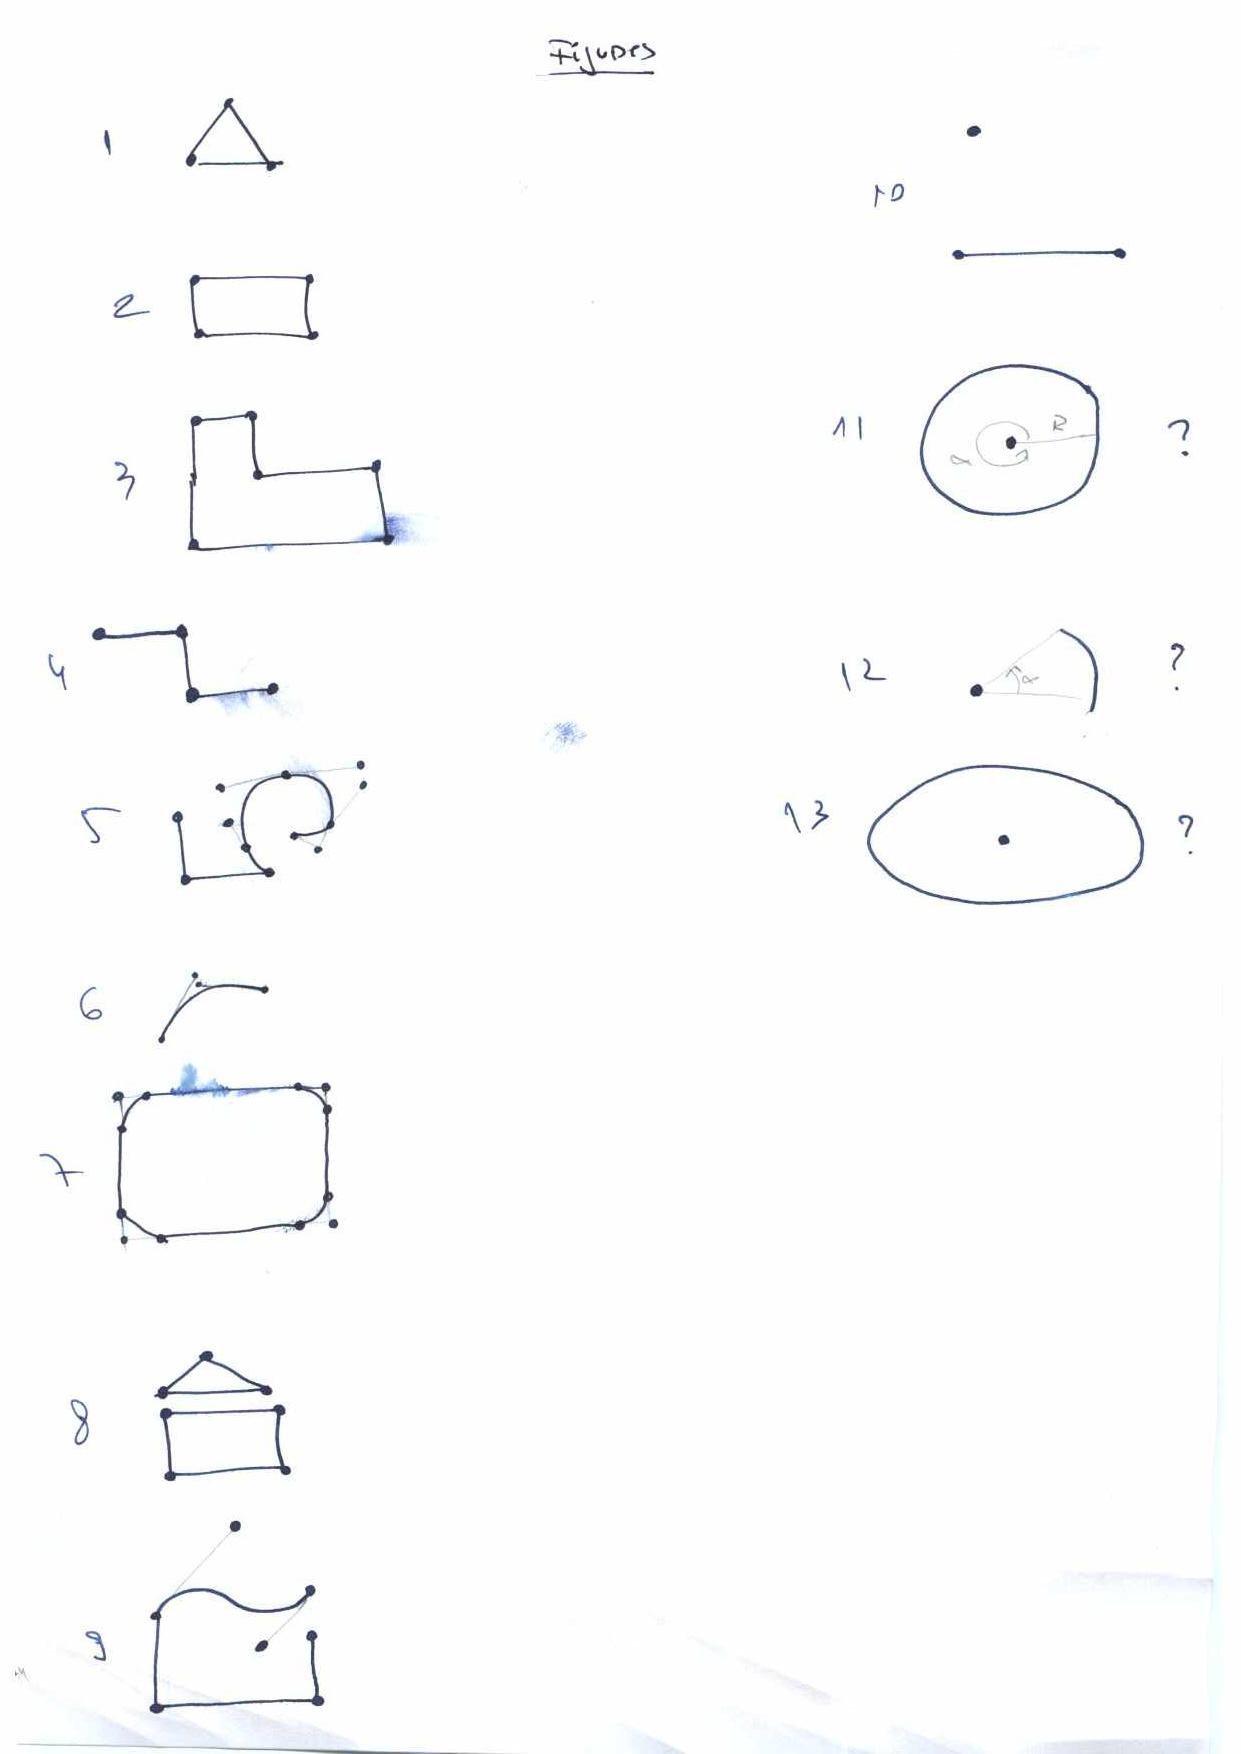 Figures
1
2
3
4
5
6
7
8
9
10
11 α R ?
12 α ?
13 ?